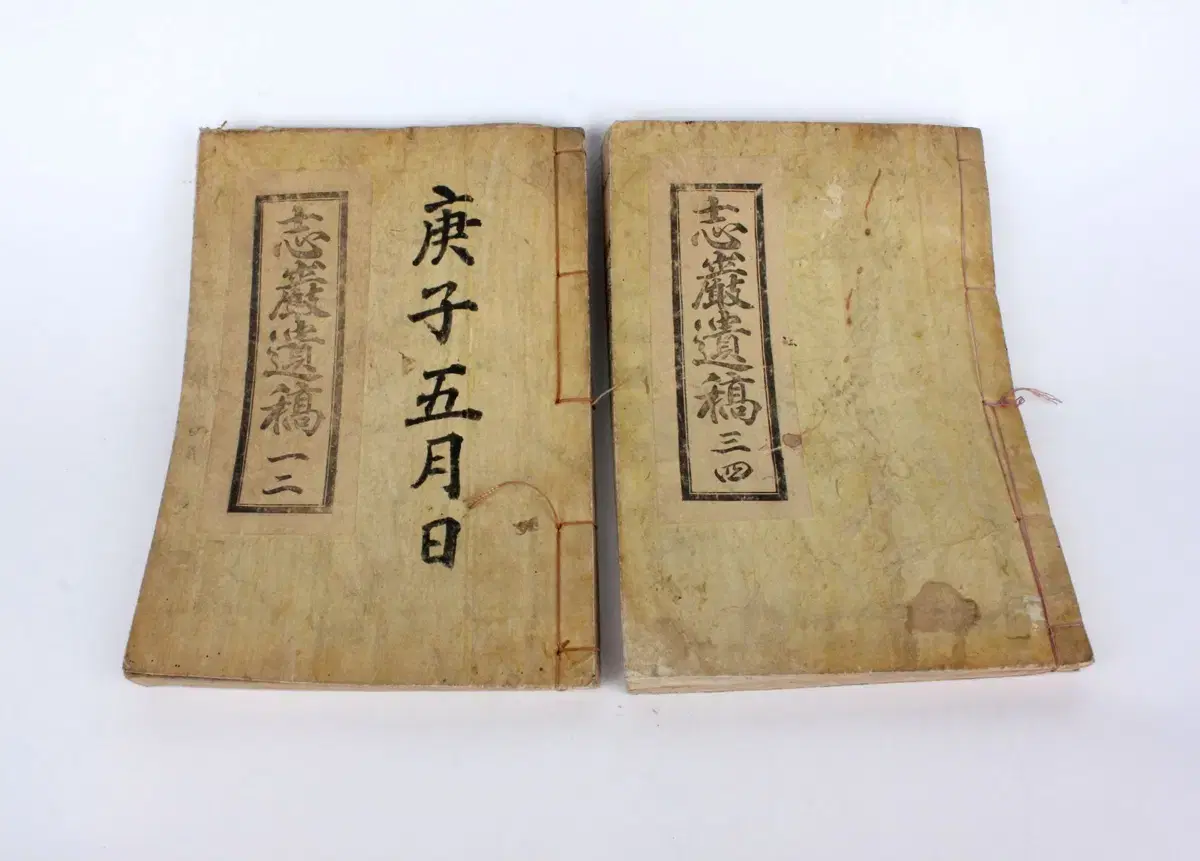 志巖遺稿 一二
庚子五月日
志巖遺稿 三四